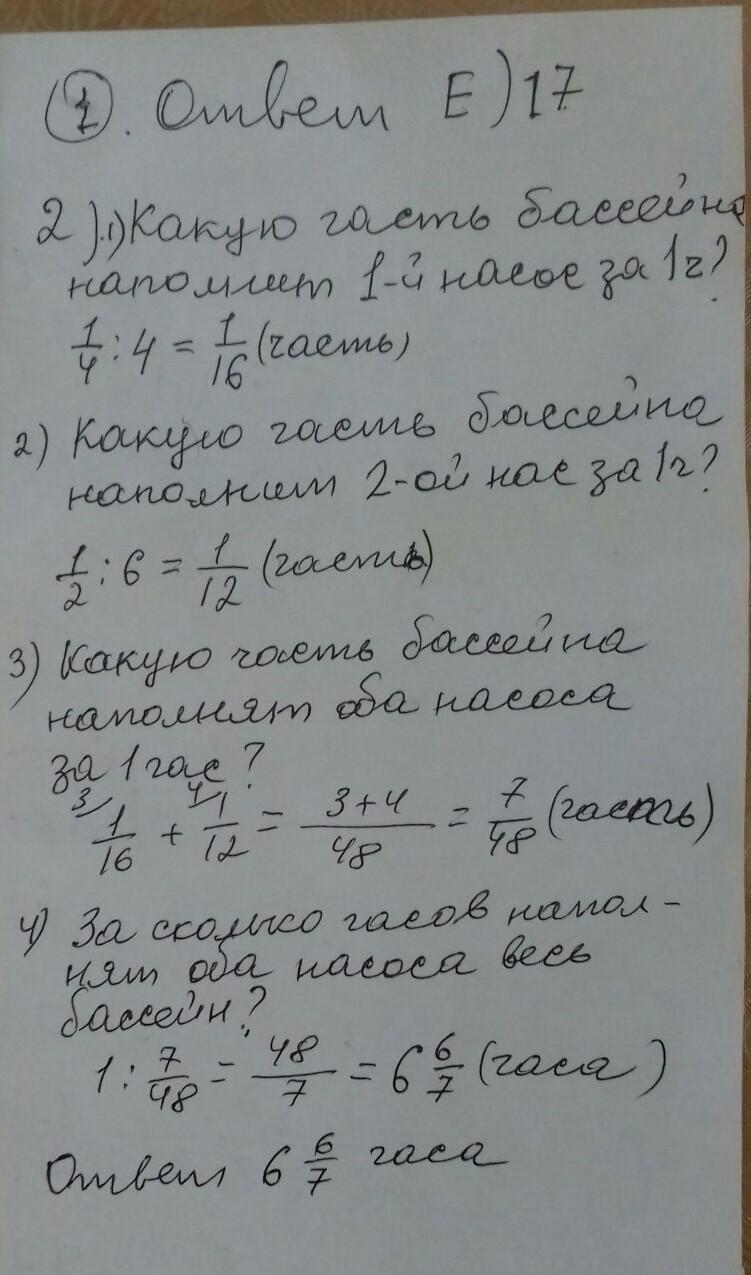 (1). Ответ E) 17
2).1) Какую часть бассейна
наполнит 1-й насос за 1ч?
1/4 : 4 = 1/16 (часть)
2) Какую часть бассейна
наполнит 2-ой нас за 1ч?
1/2 : 6 = 1/12 (часть)
3) Какую часть бассейна
наполнят оба насоса
за 1 час?
3/ 1/16 + 4/ 1/12 = 3+4/48 = 7/48 (часть)
4) За сколько часов напол-
нят оба насоса весь
бассейн?
1 : 7/48 = 48/7 = 6 6/7 (часа)
Ответ 6 6/7 часа